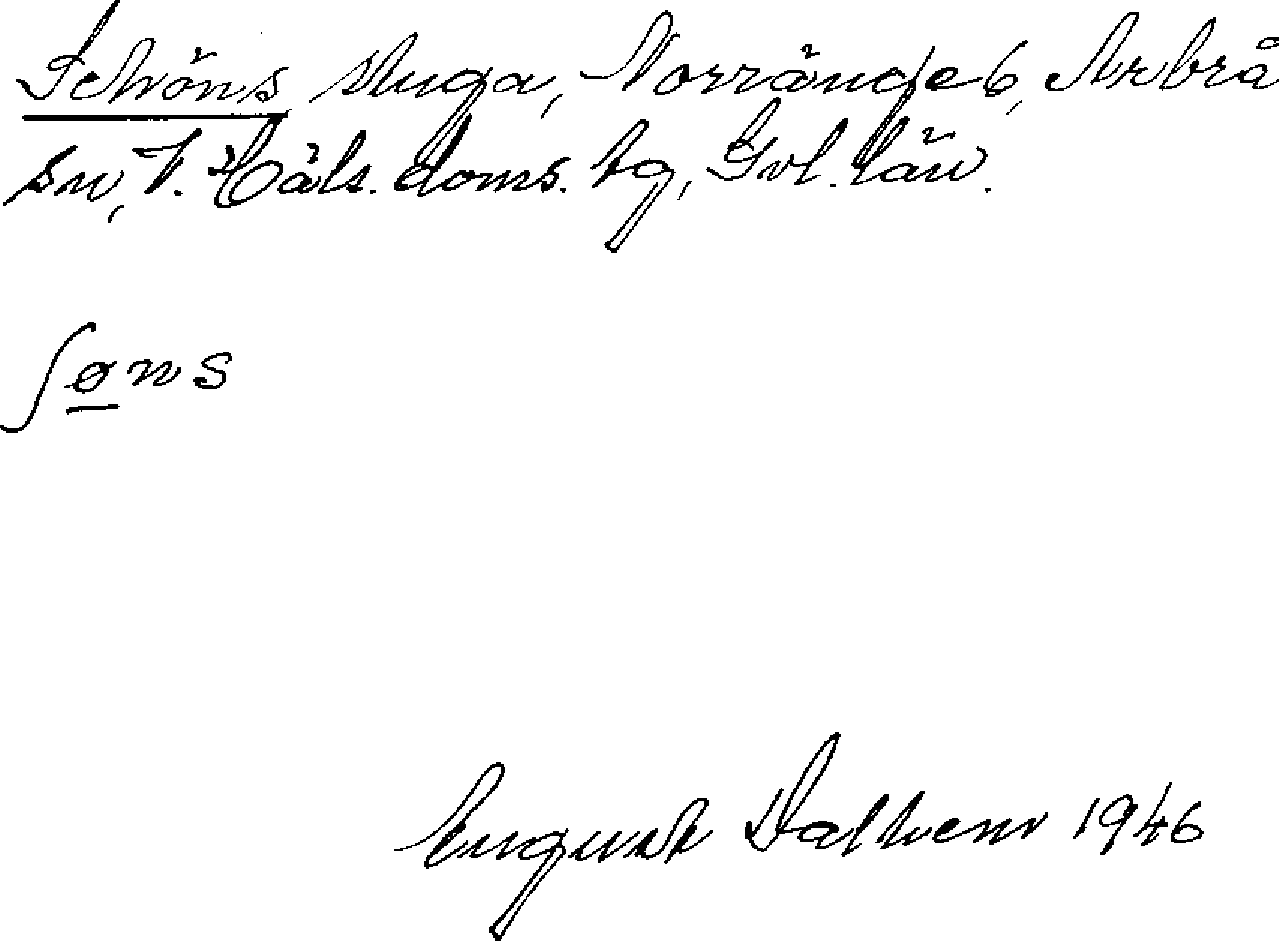 Schöns stuga, Norränge 6, Arbrå
sn, V. Häls. doms. tg, Gvl. län.
ʃøns
August Dalhem 1946